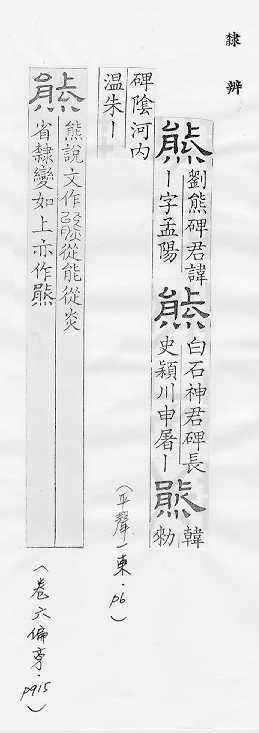 隸辨
熊劉熊碑君諱
丨字孟陽熊白石神君碑長
史潁川申屠丨熊韓勑
碑陰河内
温朱丨
(平聲一東·p6)
熊熊說文作從能從炎
省隸變如上亦作㷱
(卷六偏旁·p915)